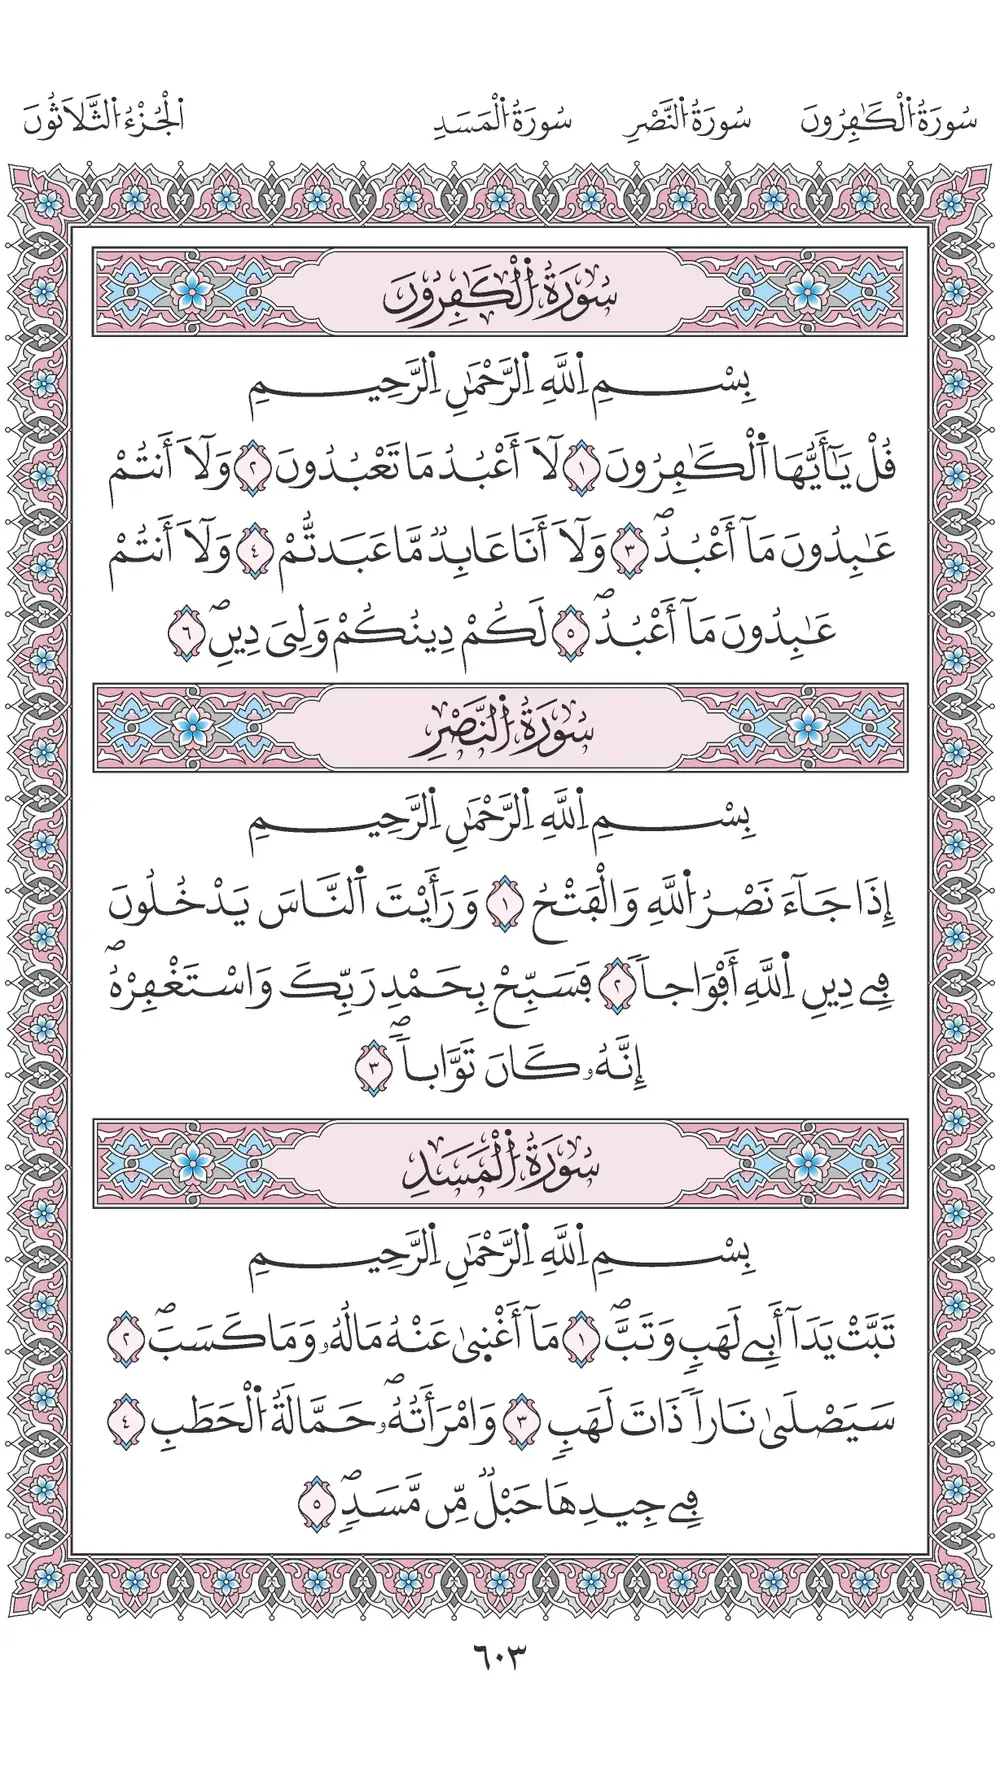 سُورَةُ اُلْكَٰفِرُونَ سُورَةُ اُلنَّصْرِ سُورَةُ اُلْمَسَدِ اَلْجُزْءُ اُلثَّلَاثُونَ
سُورَةُ اُلْكَٰفِرُونَ
بِسْمِ اِللَّهِ اِلرَّحْمَٰنِ اِلرَّحِيمِ
قُلْ يَٰٓأَيُّهَا اَلْكَٰفِرُونَ ١ لَآ أَعْبُدُ مَا تَعْبُدُونَ ٢ وَلَآ أَنتُمْ
عَٰبِدُونَ مَآ أَعْبُدُۖ ٣ وَلَآ أَنَا عَابِدٞ مَّا عَبَدتُّمْ ٤ وَلَآ أَنتُمْ
عَٰبِدُونَ مَآ أَعْبُدُۖ ٥ لَكُمْ دِينُكُمْ وَلِيَ دِينِۖ ٦
سُورَةُ اُلنَّصْرِ
بِسْمِ اِللَّهِ اِلرَّحْمَٰنِ اِلرَّحِيمِ
إِذَا جَآءَ نَصْرُ اُللَّهِ وَالْفَتْحُ ١ وَرَأَيْتَ اَلنَّاسَ يَدْخُلُونَ
فِے دِينِ اِللَّهِ أَفْوَاجاٗ ٢ فَسَبِّحْ بِحَمْدِ رَبِّكَ وَاسْتَغْفِرْهُۖ
إِنَّهُۥ كَانَ تَوَّاباَۢۖ ٣
سُورَةُ اُلْمَسَدِ
بِسْمِ اِللَّهِ اِلرَّحْمَٰنِ اِلرَّحِيمِ
تَبَّتْ يَدَآ أَبِے لَهَبٖ وَتَبَّۖ ١ مَآ أَغْنَىٰ عَنْهُ مَالُهُۥ وَمَا كَسَبَۖ ٢
سَيَصْلَىٰ نَاراٗ ذَاتَ لَهَبٖ ٣ وَامْرَأَتُهُۥۖ حَمَّالَةُ اُلْحَطَبِ ٤
فِے جِيدِهَا حَبْلٞ مِّن مَّسَدِۢۖ ٥
٦٠٣